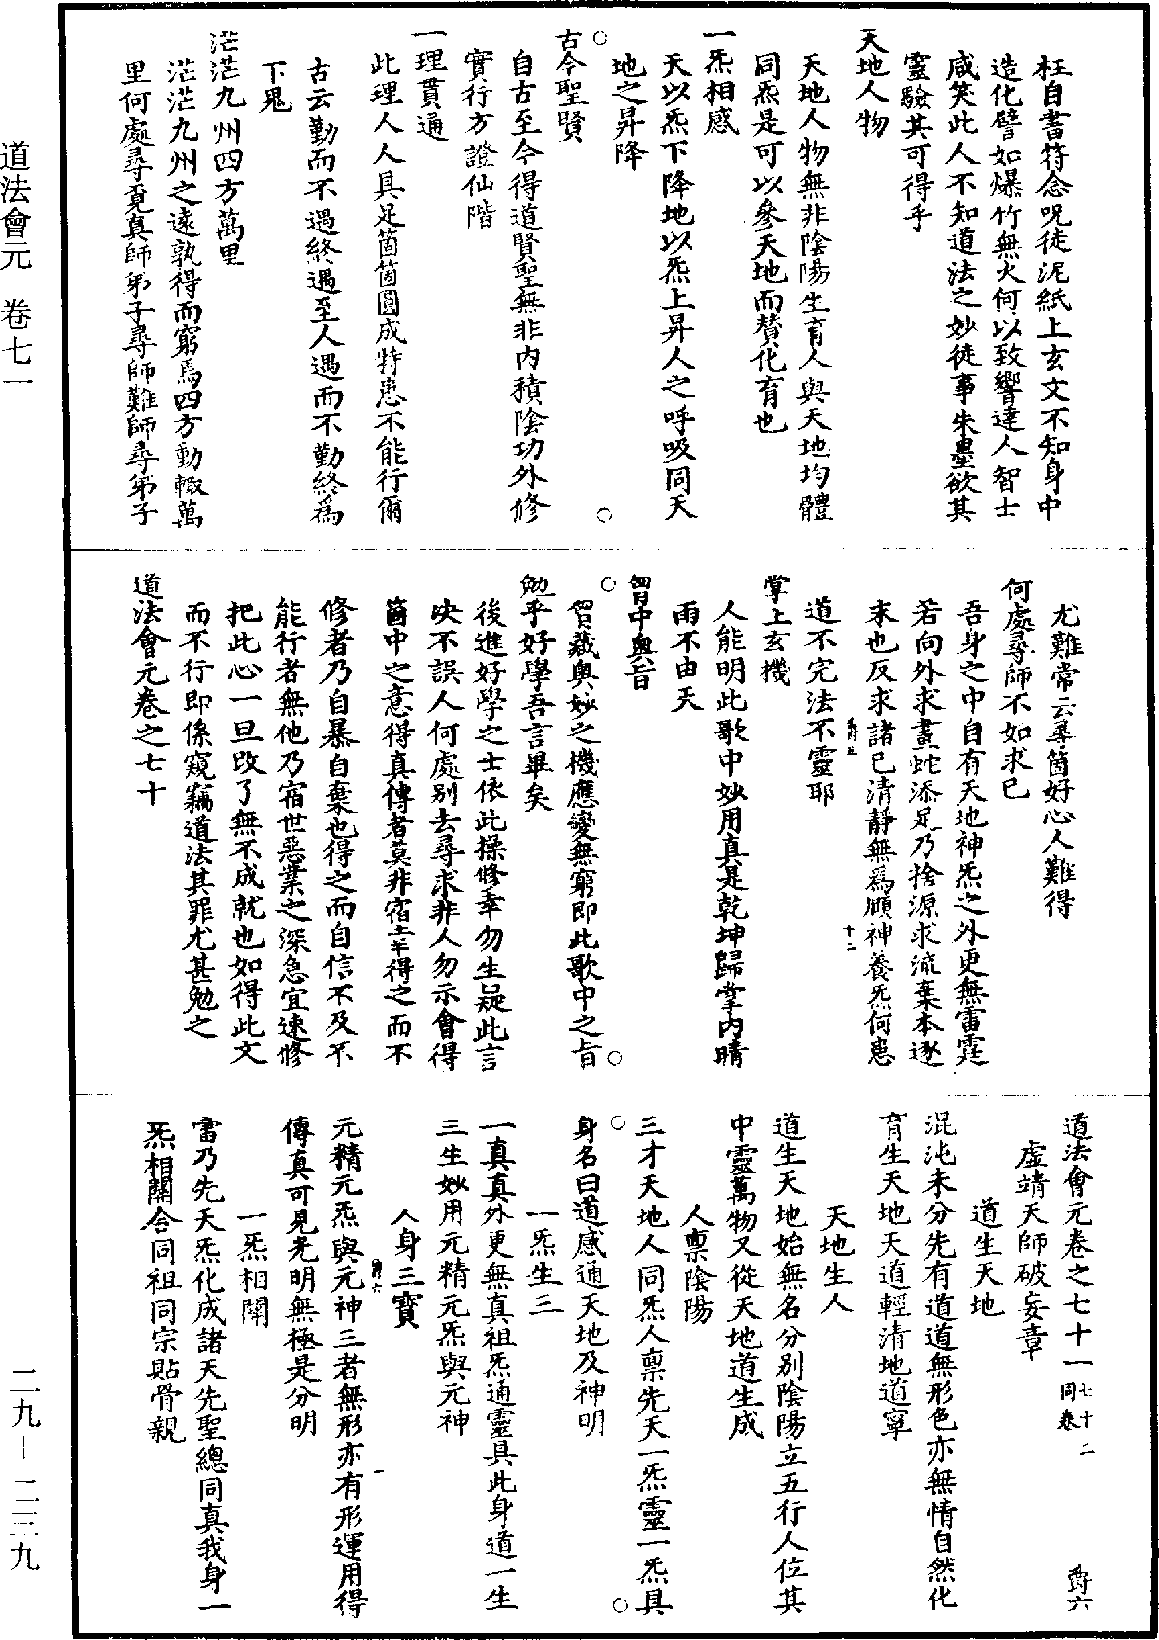 道法會元　卷七一
枉自書符念呪徒泥紙上玄文不知身中
造化譬如爆竹無火何以致響達人智士
咸笑此人不知道法之妙徒事朱墨欲其
靈驗其可得乎
天地人物
天地人物無非陰陽生育人與天地均體
同炁是可以參天地而贊化育也
一炁相感
天以炁下降地以炁上昇人之呼吸同天
地之昇降
古今聖賢
自古至今得道賢聖無非內積陰功外修
實行方證仙階
一理貫通
此理人人具足箇箇圓成特患不能行爾
古云勤而不遇終遇至人遇而不勤終爲
下鬼
茫茫九州四方萬里
茫茫九州之遠孰得而窮焉四方動輙萬
里何處尋覓真師弟子尋師難師尋弟子
尤難常云尋箇好心人難得
何處尋師不如求己
吾身之中自有天地神炁之外更無雷霆
若向外求畫蛇添足乃捨源求流棄本逐
末也反求諸己清靜無爲頤神養炁何患
道不完法不靈耶
爵五
十二
掌上玄機
人能明此歌中妙用真是乾坤歸掌內晴
雨不由天
胷中奧旨
胷藏奧妙之機應變無窮即此歌中之旨
勉乎好學吾言畢矣
後進好學之士依此操修幸勿生疑此言
決不誤人何處別去尋求非人勿示會得
箇中之意得真傳者莫非宿幸得之而不
修者乃自暴自棄也得之而自信不及不
能行者無他乃宿世惡業之深急宜速修
把此心一旦改了無不成就也如得此文
而不行即係窺竊道法其罪尤甚勉之
道法會元卷之七十
道法會元卷之七十一七十二同卷　爵六
虛靖天師破妄章
道生天地
混沌未分先有道道無形色亦無情自然化
育生天地天道輕清地道寧
天地生人
道生天地始無名分別陰陽立五行人位其
中靈萬物又從天地道生成
人禀陰陽
三才天地人同炁人禀先天一炁靈一炁具
身名曰道感通天地及神明
一炁生三
一真真外更無真祖炁通靈具此身道一生
三生妙用元精元炁與元神
人身三寶
爵六
一
元精元炁與元神三者無形亦有形運用得
傳真可見光明無極是分明
一炁相關
雷乃先天炁化成諸天先聖總同真我身一
炁相關合同祖同宗貼骨親
二九－二三九